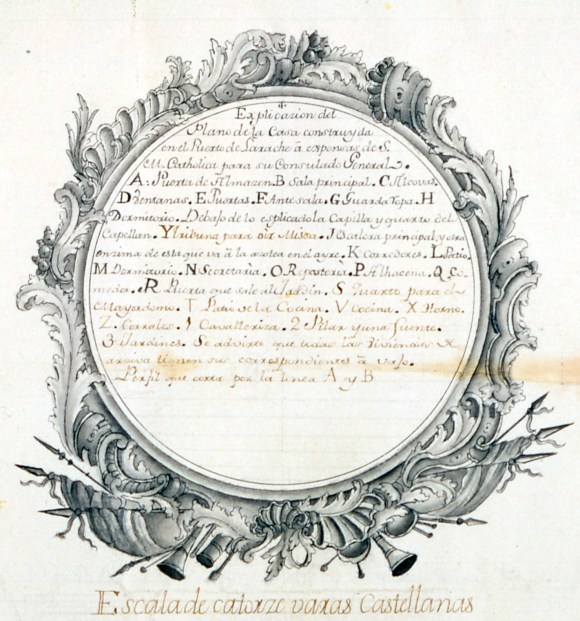 Explicazion del
Plano de la Casa construyda
en el Puerto de Larache â expensas de S.
M. Catholica para su Consulado General.
A. Puerta de Almazen. B Sala principal. C Alcovas
D Ventanas. E Puertas. F Antesala. G Guarda Ropa. H
Dormitorio. Debaxo de lo esplicado la Capilla y quarto del
Capellan. Y Tribuna para oir Missa. J Escalera principal, y otra
enzima de esta que va â la azotea en el ayre. K Corredores. L Patio
M Dormitorio. N Secretaria. O Reposteria. P Alhacena. Q Co-
medor. R Puerta que sale al Jardin. S Quarto para el
Mayordomo. T Patio de la Cocina. V Cocina. X Horno.
Z. Corrales. 1 Cavalleriza. 2 Pilar y una fuente.
3 Jardines. Se advierte que todas las Viviendas de
arriva tienen sus correspondientes â vajo.
Perfil que corta por la linea A y B
Escala de catorze varas Castellanas